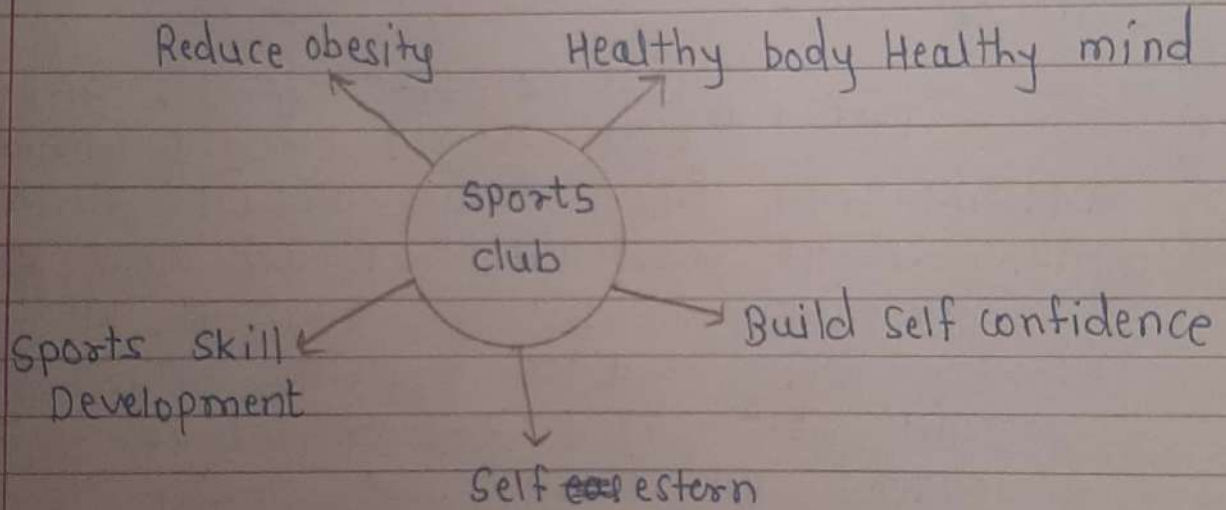 Reduce obesity
Healthy body Healthy mind
Sports
club
Build Self confidence
Sports Skill
Development
Self estern